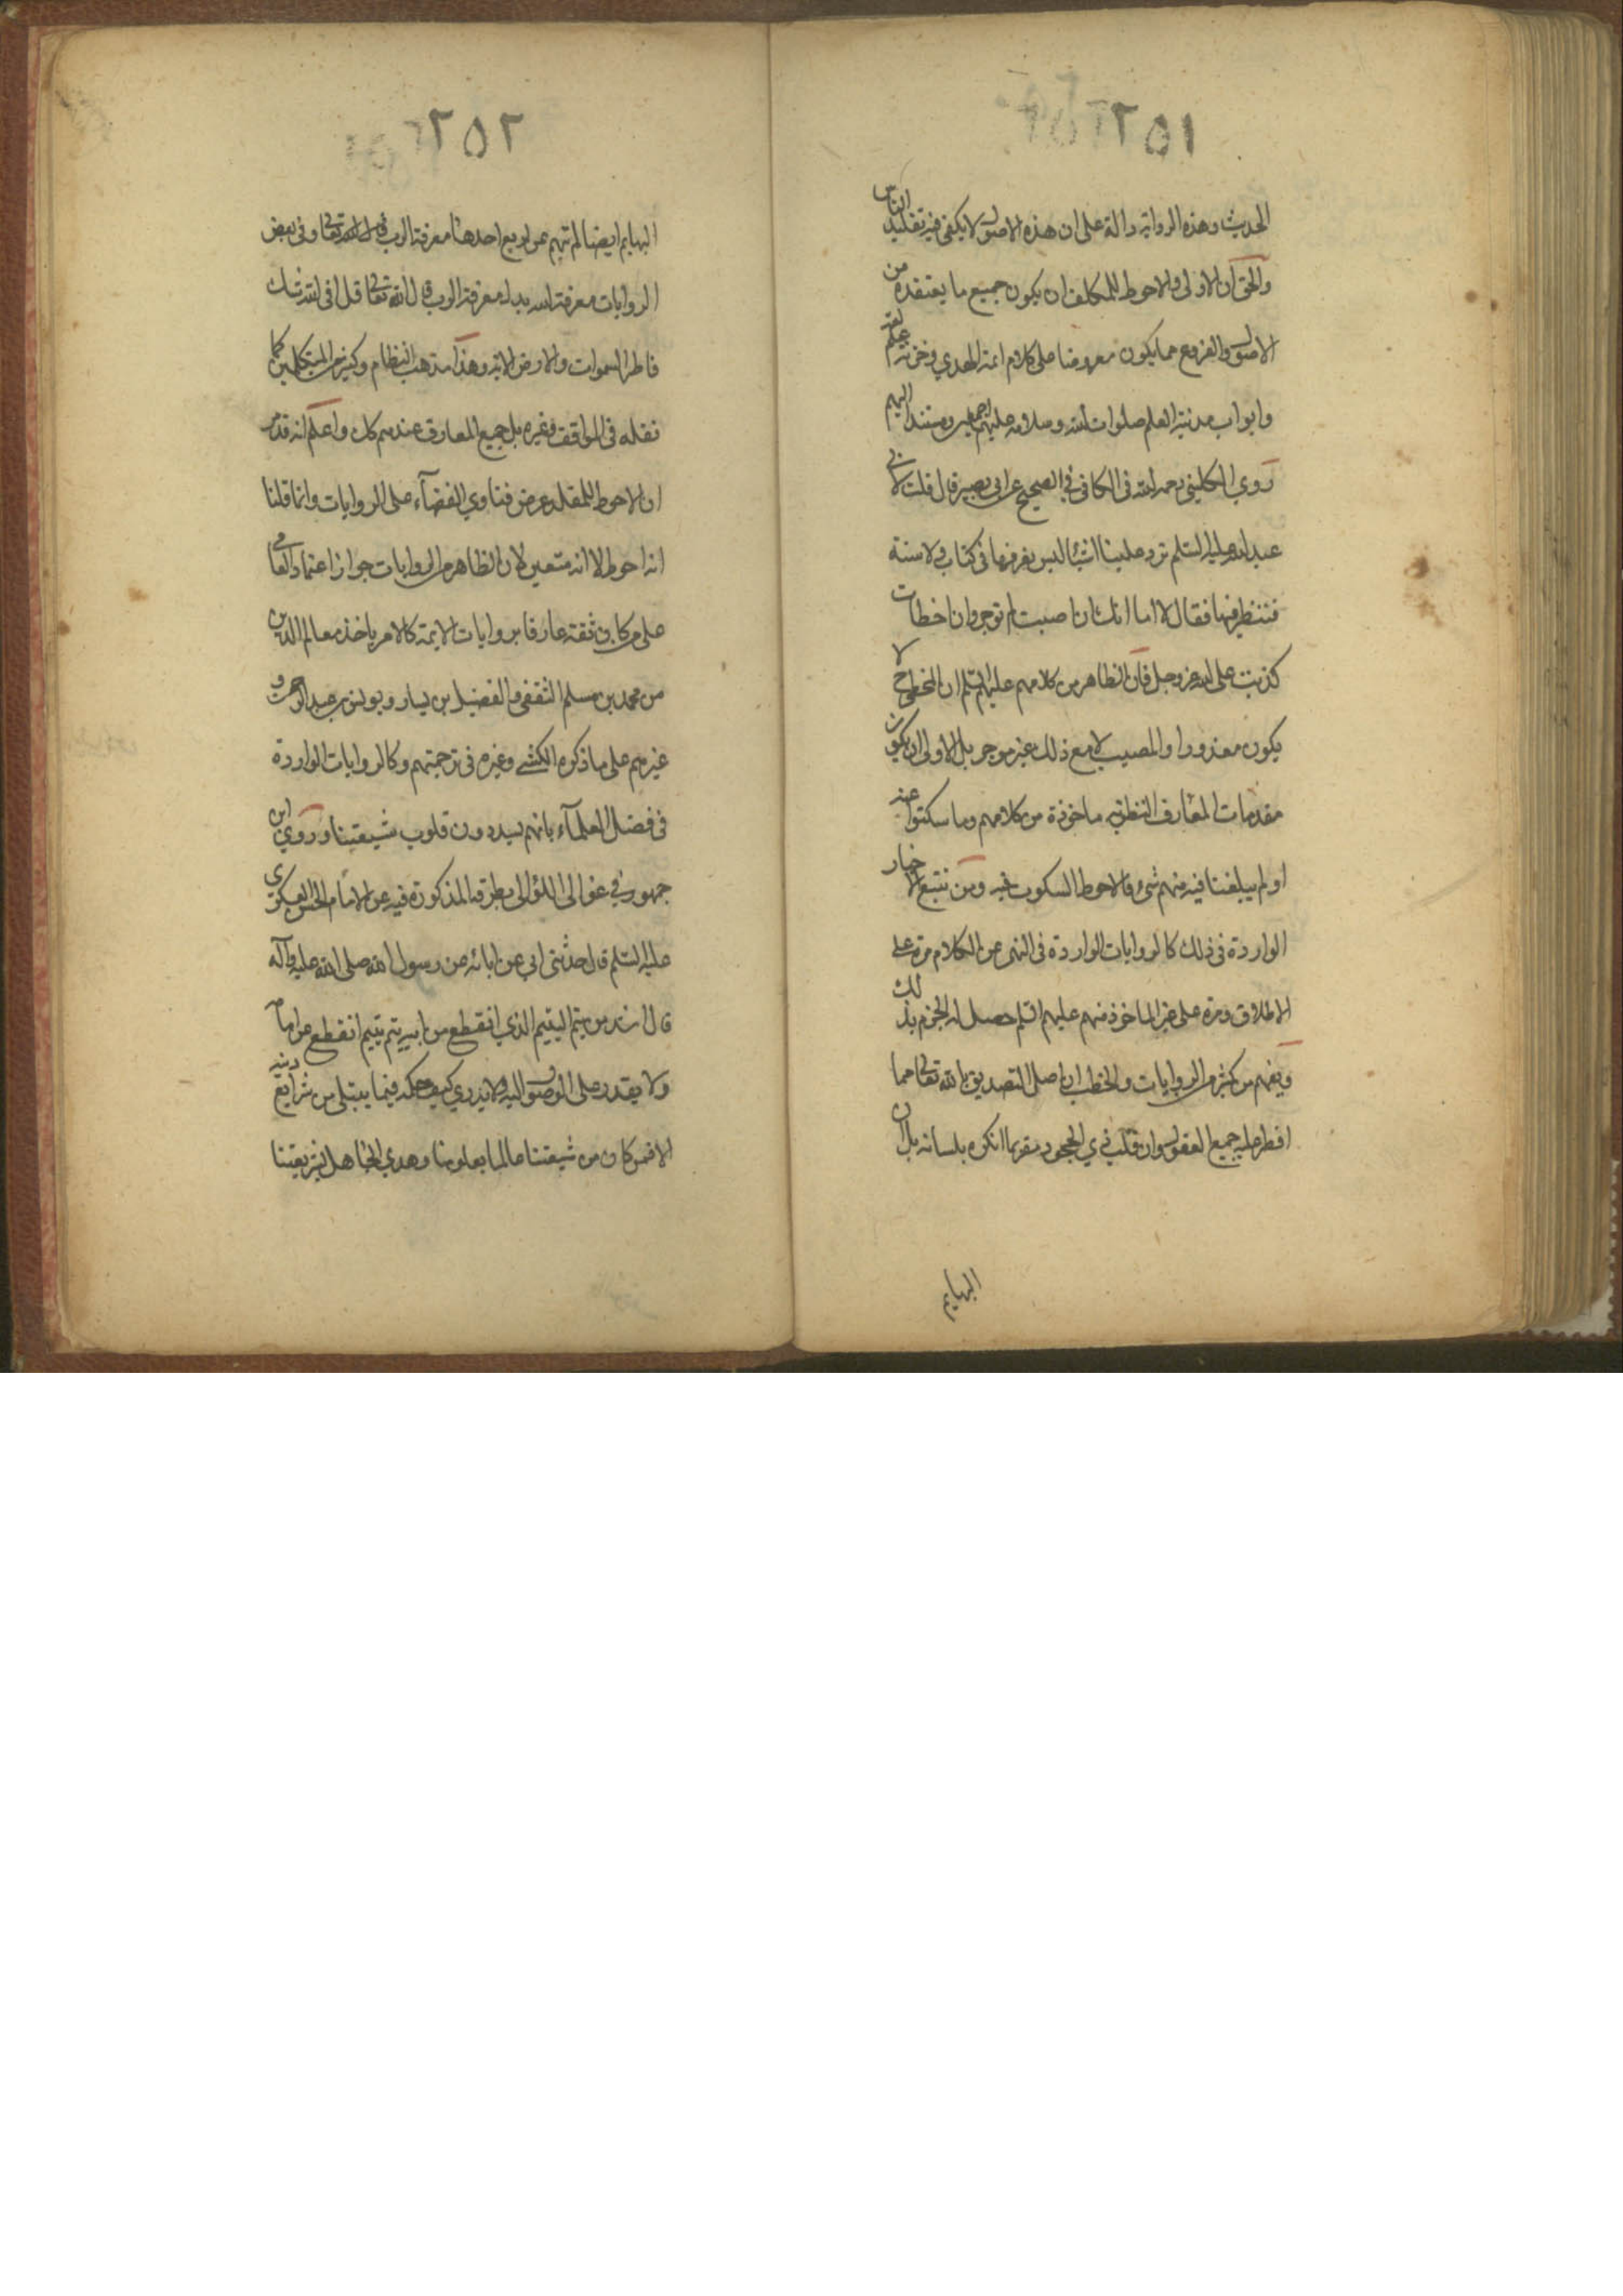 ٢٥١
الحديث وهذه الرواية دالة على ان هذه الاصول لا يكفى فيه تقليد الناس
والحق ان الاولى والاحوط للمكلف ان يكون جميع ما يعتقده من
الاصول والفروع مما يكون معروضا على كلام ائمة الهدي وخزنة علم
وابواب مدينة العلم صلوات الله وسلامه عليهم اجمعين ومستندا اليهم
روي الكليني رحمه الله فى الكافى فى الصحيح عن ابى بصير قال قلت لابي
عبد الله عليه السلم ترد علينا اشيآ ليس نعرفها فى كتاب ولا سنة
فننظر فيها فقال لا اما انك ان اصبت لم توجر وان اخطات
كذبت على الله عز وجل فان الظاهر من كلامهم عليهم السلم ان المخطى ح لا
يكون معذورا والمصيب لا مع ذلك غير موجر بل الاولى ان يكون
مقدمات المعارف النظرية ماخوذة من كلامهم وما سكتوا عنه
او لم يبلغنا فيه منهم شئ فالاحوط السكوت فيه ومن تتبع الاخبار
الواردة فى ذلك كالروايات الواردة فى النهى عن الكلام مرة على
الاطلاق ومرة على غير الماخوذ منهم عليهم السلم حصل له الجزم بذلك
ويفهم من كثير من الروايات والخطب ان اصل التصديق بالله تعالى مما
افطر عليه جميع العقول وان قلب ذي الجحود مقر بما انكره بلسانه بل ان
البهايم
٢٥٢
البهايم ايضا لم تبهم عن اربع احدها معرفة الرب قال الله تعالى وفى بعض
الروايات معرفة الله بدل معرفة الرب قال الله تعالى قل افى الله شك
فاطر السموات والارض الاية وهذا مذهب النظام وكثير من المتكلمين كما
نقله فى المواقف وغيره بل جميع المعارف عندهم كك واعلم انه قد مر
ان الاحوط للمقلد عرض فتاوي الفضآء على الروايات وانما قلنا
انه احوط لا انه متعين لان الظاهر من الروايات جواز اعتماد العامى
على من كان ثقة عارفا بروايات الايمة كالامر باخذ معالم الدين
من محمد بن مسلم الثقفى والفضيل بن يسار ويونس بن عبد الرحمن و
غيرهم على ما ذكره الكشى وغيره فى ترجمتهم وكالروايات الواردة
فى فضل العلمآء بانهم يسددون قلوب شيعتنا وروي ابن
جمهور في غوالى اللؤالى بطرقه المذكورة فيه عن الامام الحسن العسكرى
عليه السلم قال حدثنى ابى عن ابائه عن رسول الله صلى الله عليه وآله
قال اشد من يتم اليتيم الذي انقطع من ابيه يتم يتيم انقطع عن امامه
ولا يقدر على الوصول اليه ولا يدري كيف حكمه فيما يبتلى من شرايع دينه
الا فمن كان من شيعتنا عالما بعلومنا وهدي الجاهل بشريعتنا